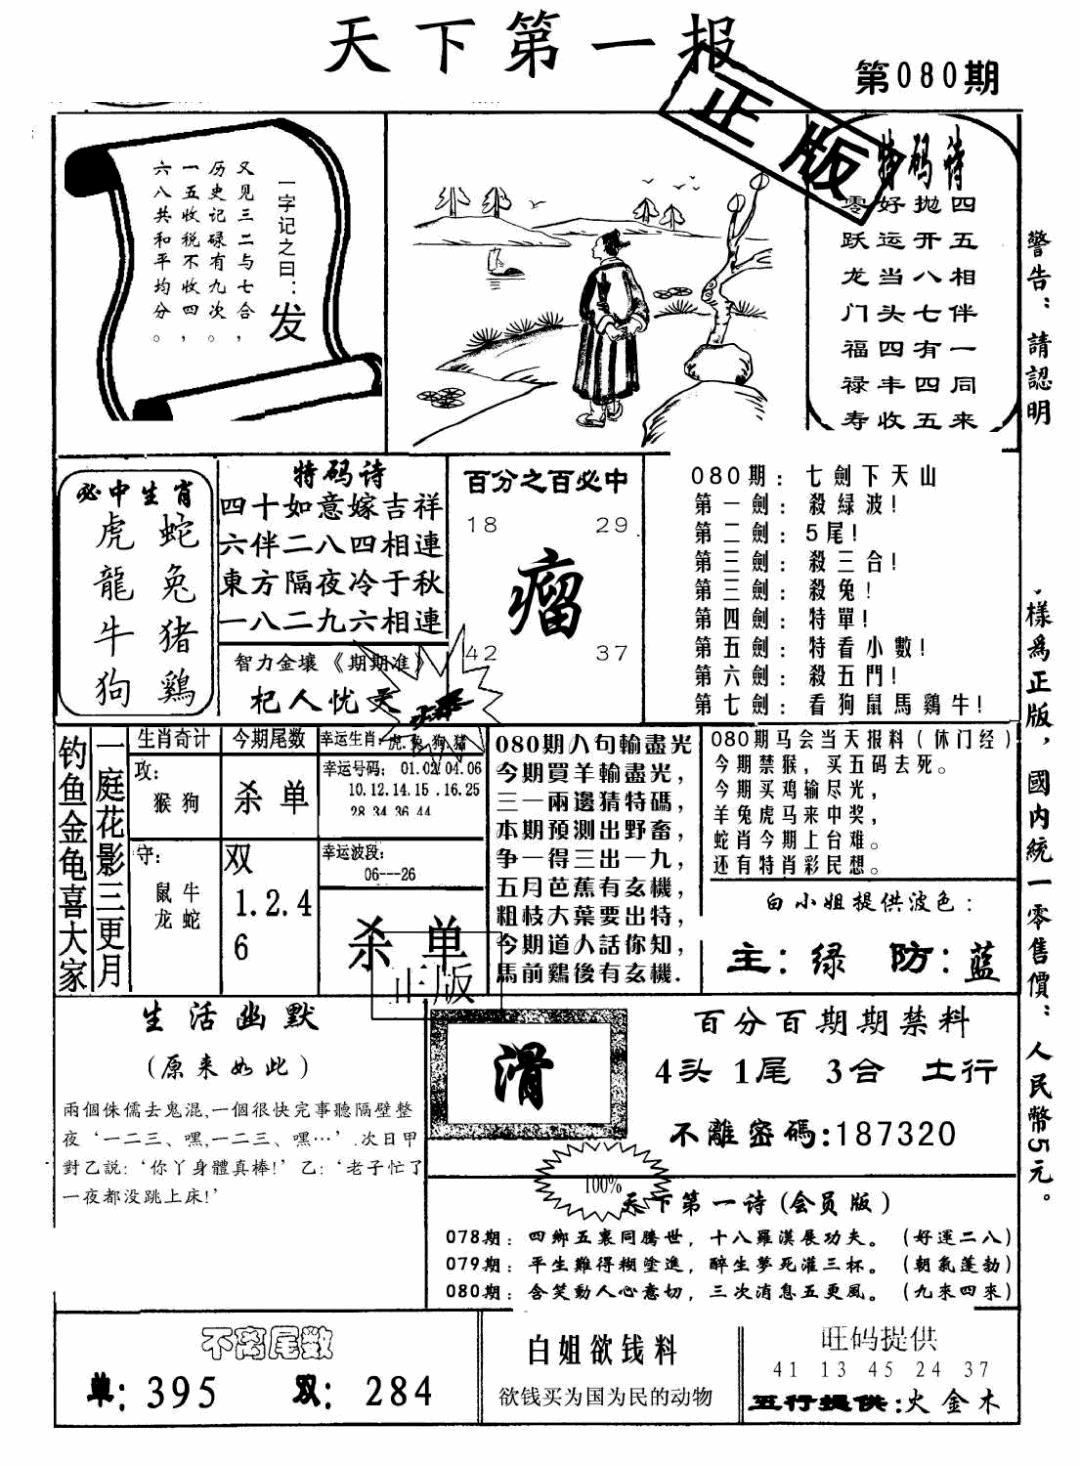 天下第一报
第080期
正版
一字记之曰：发
又见三二与七合，
历史记碌有九次。
一五收税不收四，
六八共和平均分。
特码诗
四五相伴一同来
抛开八七有四五
好运当头四丰收
零跃龙门福禄寿
警告：請認明
樣為正版，國内統一零售價：人民幣5元。
必中生肖
虎 蛇
龍 兔
牛 猪
狗 鷄
特码诗
四十如意嫁吉祥
六伴二八四相連
東方隔夜冷于秋
一八二九六相連
智力金壤《期期准》
杞人忧天
百分之百必中
18 29
瘤
42 37
080期：七劍下天山
第一劍：殺緑波！
第二劍：5尾！
第三劍：殺三合！
第三劍：殺兔！
第四劍：特單！
第五劍：特看小數！
第六劍：殺五門！
第七劍：看狗鼠馬鷄牛！
钓鱼金龟喜大家
一庭花影三更月
生肖奇计
攻：
猴 狗
守：
鼠 牛
龙 蛇
今期尾数
杀 单
双
1.2.4
6
幸运生肖：虎 兔 狗 猪
幸运号码：01.02.04.06
10.12.14.15.16.25
28 34 36 44
幸运波段：
06---26
杀 单
正版
080期八句輸盡光
今期買羊輸盡光，
三一兩邊猜特碼，
本期預測出野畜，
争一得三出一九，
五月芭蕉有玄機，
粗枝大葉要出特，
今期道人話你知，
馬前鷄後有玄機.
080期马会当天报料（休门经）
今期禁猴，买五码去死。
今期买鸡输尽光，
羊兔虎马来中奖，
蛇肖今期上台难。
还有特肖彩民想。
白小姐提供波色：
主：绿 防：蓝
生活幽默
（原来如此）
兩個侏儒去鬼混,一個很快完事聽隔壁整
夜‘一二三、嘿,一二三、嘿…’.次日甲
對乙説：‘你丫身體真棒！’乙：‘老子忙了
一夜都没跳上床！’
滑
百分百期期禁料
4头 1尾 3合 土行
不離密碼：187320
100%
天下第一诗（会员版）
078期：四鄉五裏同騰世，十八羅漢展功夫。（好運二八）
079期：平生難得糊塗進，醉生夢死灌三杯。（朝氣蓬勃）
080期：含笑動人心意切，三次消息五更風。（九來四來）
不离尾数
单：395 双：284
白姐欲钱料
欲钱买为国为民的动物
旺码提供
41 13 45 24 37
五行提供：火金木